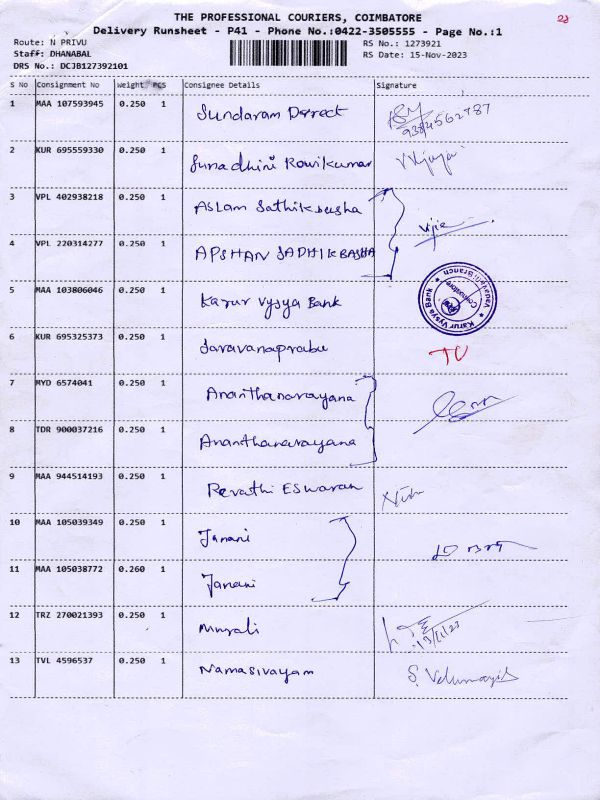 THE PROFESSIONAL COURIERS, COIMBATORE
28
Delivery Runsheet - P41 - Phone No.:0422-3505555 - Page No.:1
Route: N PRIVU
RS No.: 1273921
Staff: DHANABAL
RS Date: 15-Nov-2023
DRS No.: DCJB127392101
S No Consignment No Weight PCS Consignee Details Signature
1 MAA 107593945 0.250 1 Sundaram Direct
9384562787
2 KUR 695559330 0.250 1 Sunadhini Rowikumar Vijaya
3 VPL 402938218 0.250 1 Aslam Sathikbasha
Vijie
4 VPL 220314277 0.250 1 APSHAN SADHIKBASHA
5 MAA 103806046 0.250 1 Karur Vysya Bank
Karur Vysya Bank Vadavalli Branch Coimbatore
6 KUR 695325373 0.250 1 Saravanaprabu
7 MYD 6574041 0.250 1 Ananthanarayana
8 TDR 900037216 0.250 1 Ananthanarayana
9 MAA 944514193 0.250 1 Revathi Eswaran
10 MAA 105039349 0.250 1 Janani
11 MAA 105038772 0.260 1 Janani
12 TRZ 270021393 0.250 1 Murali
13 TVL 4596537 0.250 1 Namasivayam S. Velumayil